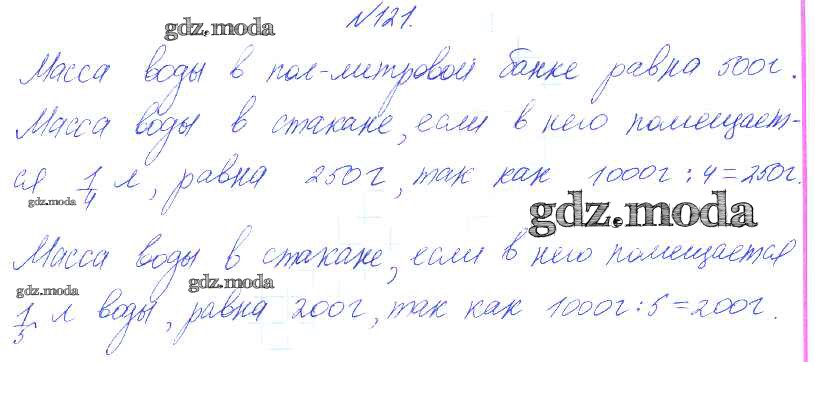 №121.
gdz.moda
Масса воды в пол-литровой банке равна 500г.
Масса воды в стакане, если в него помещает-
ся 1/4 л, равна 250г, так как 1000г : 4 = 250г.
gdz.moda
gdz.moda
Масса воды в стакане, если в него помещается
gdz.moda
gdz.moda
1/5 л воды, равна 200г, так как 1000г : 5 = 200г.